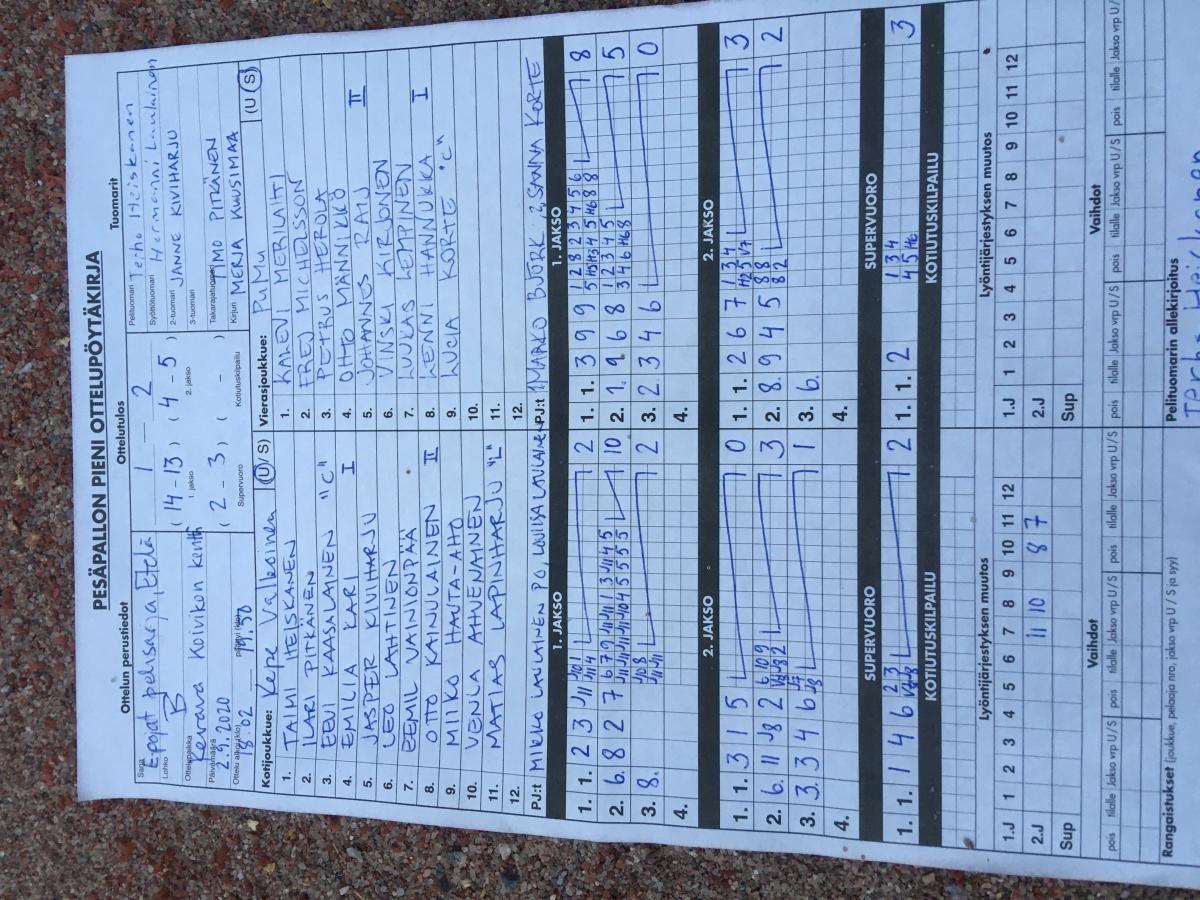 PESÄPALLON PIENI OTTELUPÖYTÄKIRJA
Ottelun perustiedot
Ottelutulos
Tuomarit
Sarja Epojat pelusarja, Etelä
Lohko B
Ottelupaikka Kerava Koivikon kenttä
Päivämäärä 2.9.2020
Ottelu alkoi (klo) 18.02 päättyi (klo) 19.50
1 – 2
(14 - 13) (4 - 5)
1. jakso 2. jakso
(2 - 3) ( - )
Supervuoro Kotiutuskilpailu
Pelituomari Terho Heiskanen
Syöttötuomari Hermanni Laulainen
2-tuomari JANNE KIVIHARJU
3-tuomari
Takarajatuomari TIMO PITKÄNEN
Kirjuri MERJA KUUSIMAA
Kotijoukkue: Kepe Valkoinen (U / S)
1. TAIMI HEISKANEN
2. ILARI PITKÄNEN
3. EEVI KAASALAINEN "C"
4. EMILIA KARI I
5. JASPER KIVIHARJU
6. LEO LAHTINEN
7. EEMIL VAINIONPÄÄ
8. OTTO KAINULAINEN II
9. MIIKO HAUTA-AHO
10. VENLA AHVENAINEN
11. MATIAS LAPINHARJU "L"
12.
PJ:t MIKKO LAULAINEN PO, LOVIISA LAULAINEN
Vierasjoukkue: PuMu (U / S)
1. KALEVI MERILAHTI
2. FREJ MICHELSSON
3. PETRUS HEROLA
4. OHTO MÄNNIKKÖ
5. JOHANNES RAJU II
6. VINSKI KIRJONEN
7. LUUKAS LEMPINEN
8. LENNI HANNUKKA I
9. LUCIA KORTE "C"
10.
11.
12.
PJ:t 1, MARKO BJÖRK 2, SANNA KORTE
1. JAKSO 1. JAKSO
1. 1. 2 3 J11 2
2. 6. 8 2 7 10
3. 8. 2
4.
1. 1. 3 9 9 8
2. 1. 9 6 8 5
3. 2. 3 4 6 0
4.
2. JAKSO 2. JAKSO
1. 1. 3 1 5 0
2. 6. 11 J8 2 3
3. 3. 3 4 6 1
4.
1. 1. 2 6 7 3
2. 8. 9 4 5 2
3. 6.
4.
SUPERVUORO SUPERVUORO
1. 1. 1 4 6 2
1. 1. 2 3
KOTIUTUSKILPAILU KOTIUTUSKILPAILU
Lyöntijärjestyksen muutos Lyöntijärjestyksen muutos
1.J 1 2 3 4 5 6 7 8 9 10 11 12
2.J 11 10 8 7
Sup
1.J 1 2 3 4 5 6 7 8 9 10 11 12
2.J
Sup
Vaihdot Vaihdot
pois tilalle Jakso vrp U / S pois tilalle Jakso vrp U / S pois tilalle Jakso vrp U / S pois tilalle Jakso vrp U / S pois tilalle Jakso vrp U / S
Rangaistukset (joukkue, pelaaja nro, jakso vrp U / S ja syy)
Pelituomarin allekirjoitus
Terho Heiskanen